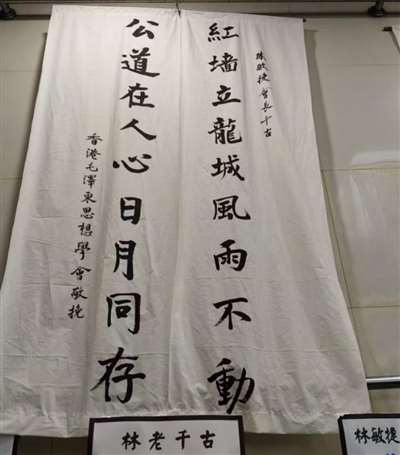 林敏捷會長千古
紅墻立龍城風雨不動
公道在人心日月同存
香港毛澤東思想學會敬挽
林老千古
林敏捷